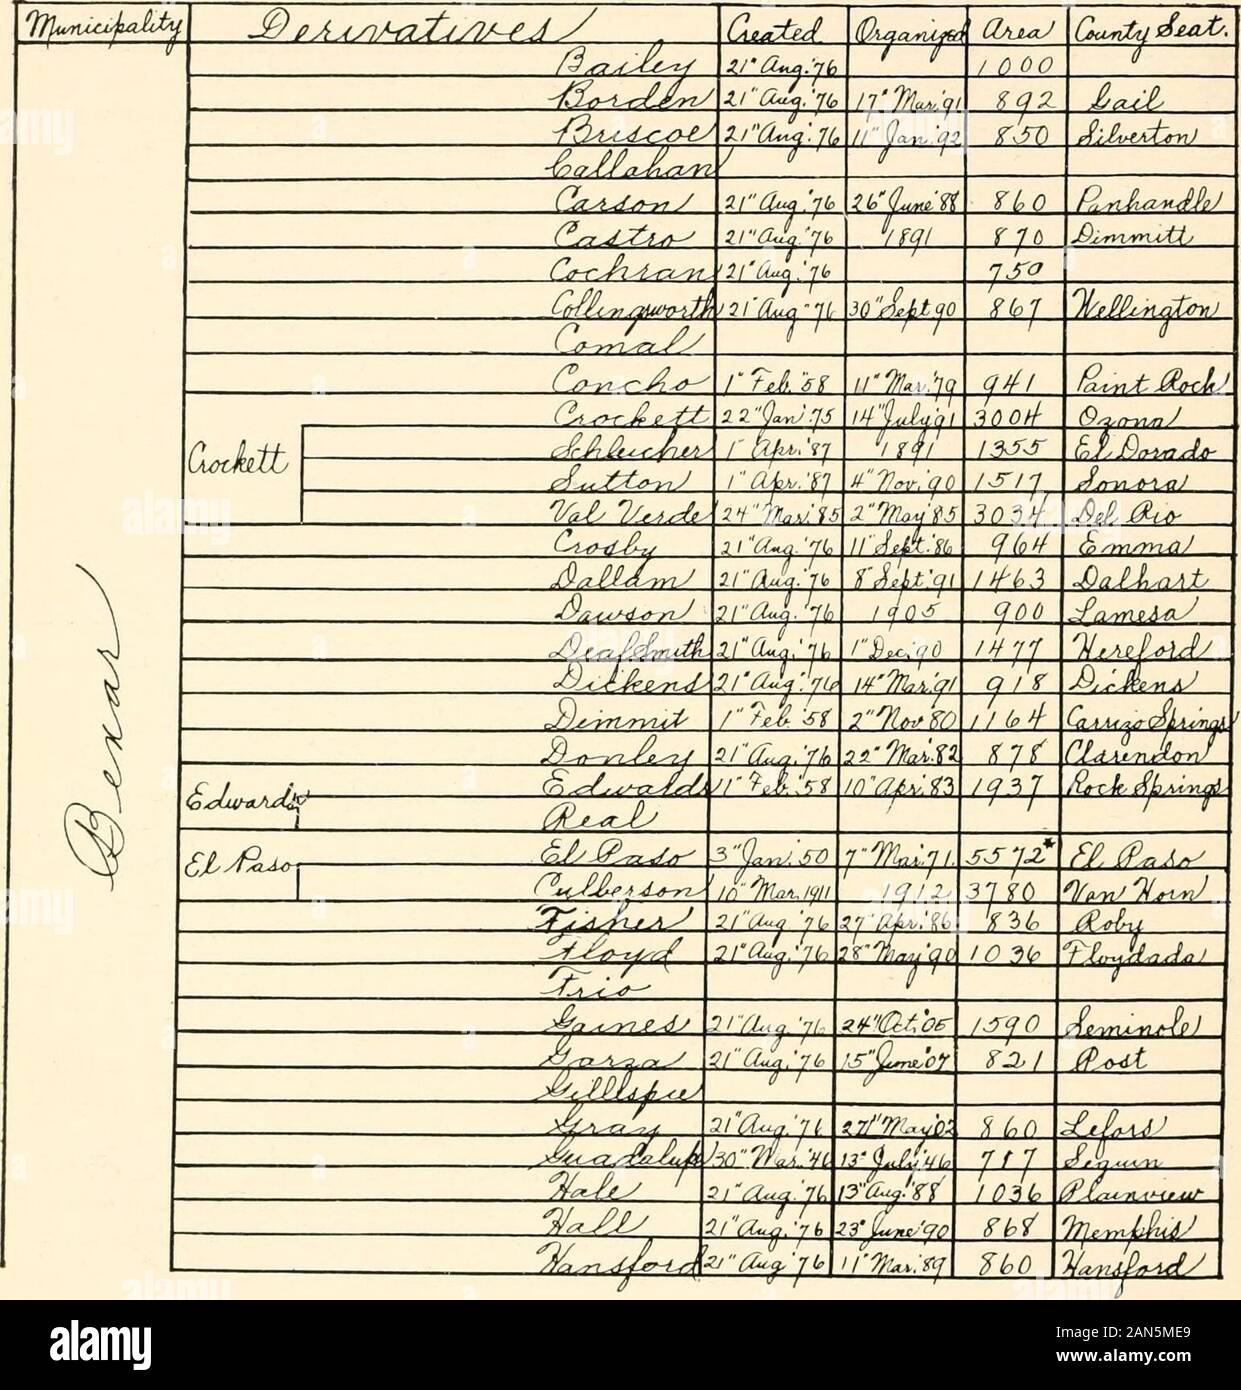 Municipality Derivatives Created Organized Area County Seat.
Bexar
Bailey 21" Aug. '76 1000
Borden 21" Aug. '76 17" Mar. '91 892 Gail
Briscoe 21" Aug. '76 11" Jan. '92 850 Silverton
Callahan
Carson 21" Aug. '76 26" June '88 860 Panhandle
Castro 21" Aug. '76 1891 870 Dimmitt
Cochran 21" Aug. '76 750
Collingsworth 21" Aug "76 30" Sept 90 867 Wellington
Comal
Concho 1" Feb. '58 11" Mar. '79 941 Paint Rock
Crockett 22" Jan '75 14" July 91 3004 Ozona
Crockett
Schleicher 1" Apr. '87 1891 1355 El Dorado
Sutton 1" Apr. '87 4" Nov. 90 1517 Sonora
Val Verde 24" Mar. '85 2" May '85 3034 Del Rio
Crosby 21" Aug. '76 11" Sept. '86 964 Emma
Dallam 21" Aug. '76 8" Sept '91 1463 Dalhart
Dawson 21" Aug. '76 1905 900 Lamesa
Deaf Smith 21" Aug. '76 1" Dec. '90 1477 Hereford
Dickens 21" Aug. '76 14" Mar. '91 918 Dickens
Dimmit 1" Feb '58 2" Nov '80 1164 Carrizo Springs
Donley 21" Aug. '76 22" Mar. 82 878 Clarendon
Edwards Edwards 1" Feb. '58 10" Apr. '83 1937 Rock Springs
Real
El Paso El Paso 3" Jan. '50 7" Mar. '71. 5572* El Paso
Culberson 10" Mar. 1911 1912 3780 Van Horn
Fisher 21" Aug '76 27" Apr. '86 836 Roby
Floyd 21" Aug. '76 28" May '90 1036 Floydada
Frio
Gaines 21" Aug. '76 24" Oct. '05 1590 Seminole
Garza 21" Aug. '76 15" June '07 821 Post
Gillespie
Gray 21" Aug. '76 27" May '02 860 Lefors
Guadalupe 30" Mar. '46 13" July '46 717 Seguin
Hale 21" Aug. '76 13" Aug. '88 1036 Plainview
Hall 21" Aug. '76 23" June '90 868 Memphis
Hansford 21" Aug '76 11" Mar. '89 860 Hansford
alamy
Image ID: 2AN5ME9
www.alamy.com